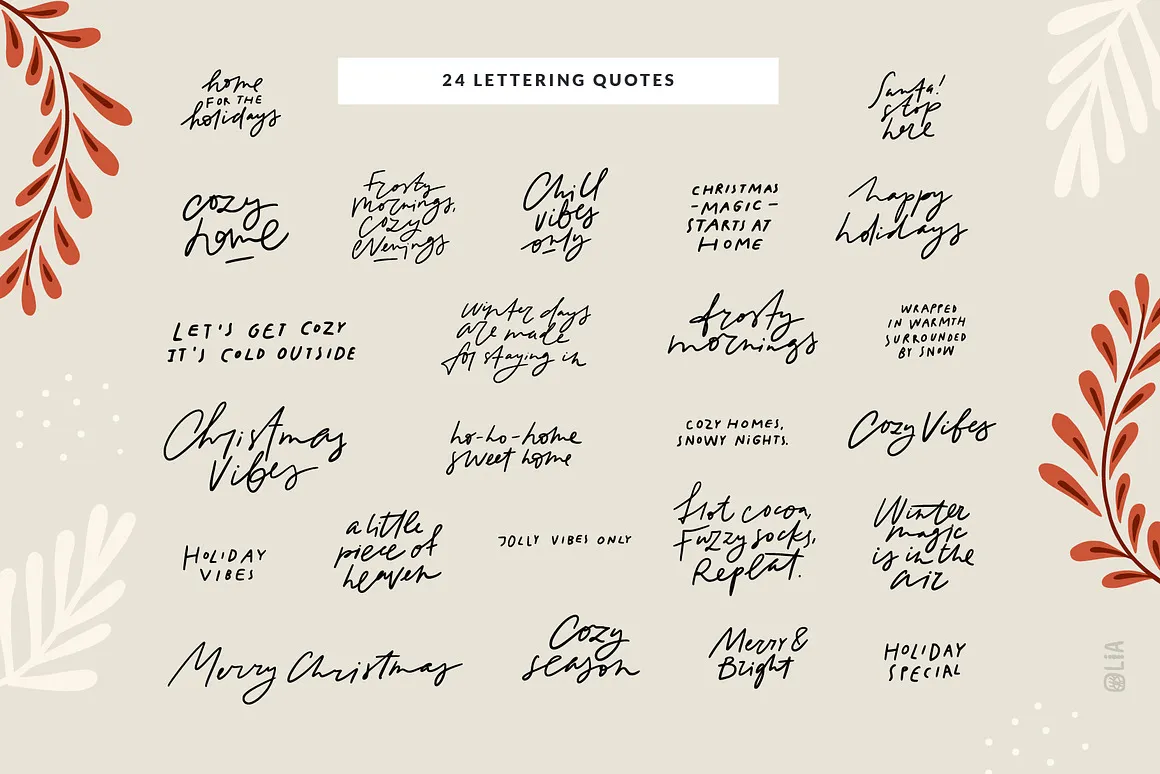 24 LETTERING QUOTES
home
FOR THE
holidays
Santa!
stop
here
cozy
home
Frosty
mornings,
cozy
evenings
Chill
vibes
only
CHRISTMAS
-MAGIC-
STARTS AT
HOME
happy
holidays
LET'S GET COZY
IT'S COLD OUTSIDE
winter days
are made
for staying in
frosty
mornings
WRAPPED
IN WARMTH
SURROUNDED
BY SNOW
Christmas
Vibes
ho-ho-home
sweet home
COZY HOMES,
SNOWY NIGHTS.
Cozy Vibes
HOLIDAY
VIBES
a little
piece of
heaven
JOLLY VIBES ONLY
Hot cocoa,
Fuzzy socks,
Repeat.
Winter
magic
is in the
air
Merry Christmas
Cozy
season
Merry &
Bright
HOLIDAY
SPECIAL
@LiA